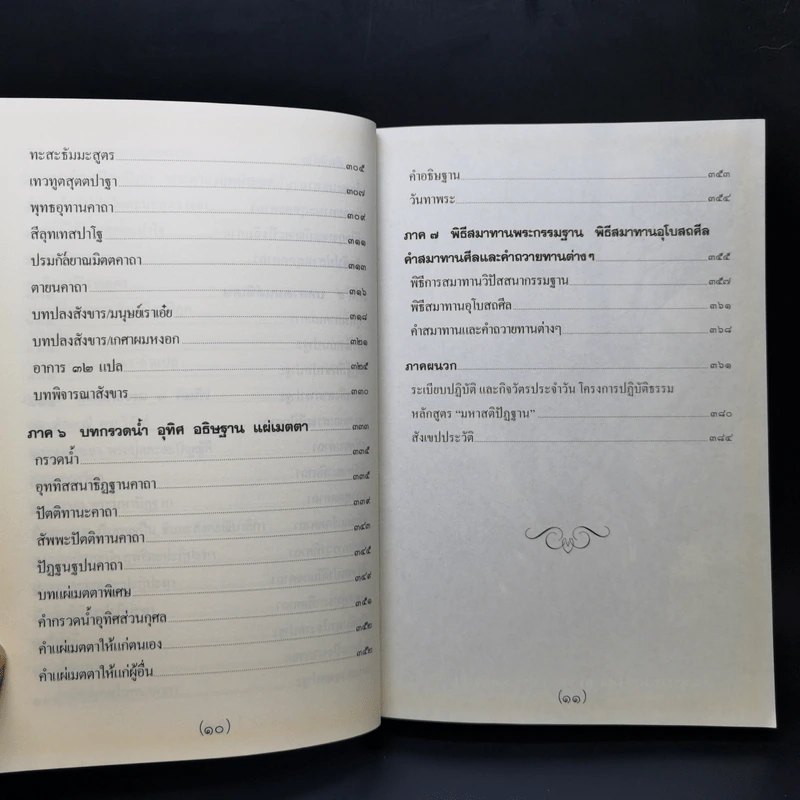 ทะสะธัมมะสูตร ๓๐๕
เทวทูตสุตตปาฐา ๓๐๗
พุทธอุทานคาถา ๓๐๙
สีลุทเทสปาโฐ ๓๑๑
ปรมกัล์ยาณมิตตคาถา ๓๑๓
ตายนคาถา ๓๑๖
บทปลงสังขาร/มนุษย์เราเอ๋ย ๓๑๘
บทปลงสังขาร/เกศาผมหงอก ๓๒๑
อาการ ๓๒ แปล ๓๒๕
บทพิจารณาสังขาร ๓๓๐
ภาค ๖ บทกรวดน้ำ อุทิศ อธิษฐาน แผ่เมตตา ๓๓๓
กรวดน้ำ ๓๓๕
อุททิสสนาธิฏฐานคาถา ๓๓๕
ปัตติทานะคาถา ๓๓๙
สัพพะปัตติทานคาถา ๓๔๓
ปัฏฐนฐปนคาถา ๓๔๕
บทแผ่เมตตาพิเศษ ๓๔๙
คำกรวดน้ำอุทิศส่วนกุศล ๓๕๑
คำแผ่เมตตาให้แก่ตนเอง ๓๕๒
คำแผ่เมตตาให้แก่ผู้อื่น ๓๕๒
(๑๐)
คำอธิษฐาน ๓๕๓
วันทาพระ ๓๕๔
ภาค ๗ พิธีสมาทานพระกรรมฐาน พิธีสมาทานอุโบสถศีล
คำสมาทานศีลและคำถวายทานต่างๆ ๓๕๕
พิธีการสมาทานวิปัสสนากรรมฐาน ๓๕๗
พิธีสมาทานอุโบสถศีล ๓๖๑
คำสมาทานและคำถวายทานต่างๆ ๓๖๘
ภาคผนวก ๓๖๑
ระเบียบปฏิบัติ และกิจวัตรประจำวัน โครงการปฏิบัติธรรม
หลักสูตร “มหาสติปัฏฐาน” ๓๘๐
สังเขปประวัติ ๓๘๔
(๑๑)